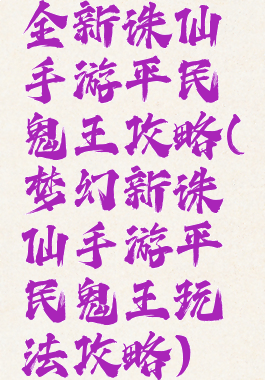 全新诛仙
手游平民
鬼王攻略(
梦幻新诛
仙手游平
民鬼王玩
法攻略)